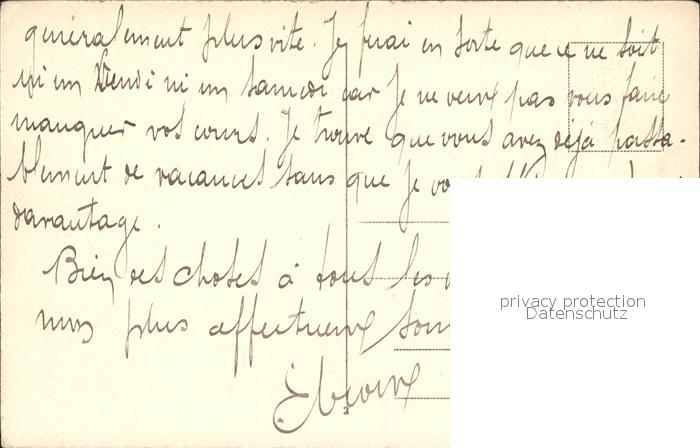 généralement plus vite. Je ferai en sorte que ce ne soit
ni un Jeudi ni un samedi car je ne veux pas vous faire
manquer vos cours. Je trouve que vous avez déjà passa-
blement de vacances sans que je
davantage.
Bien des choses à tous les
mes plus affectueux
privacy protection
Datenschutz